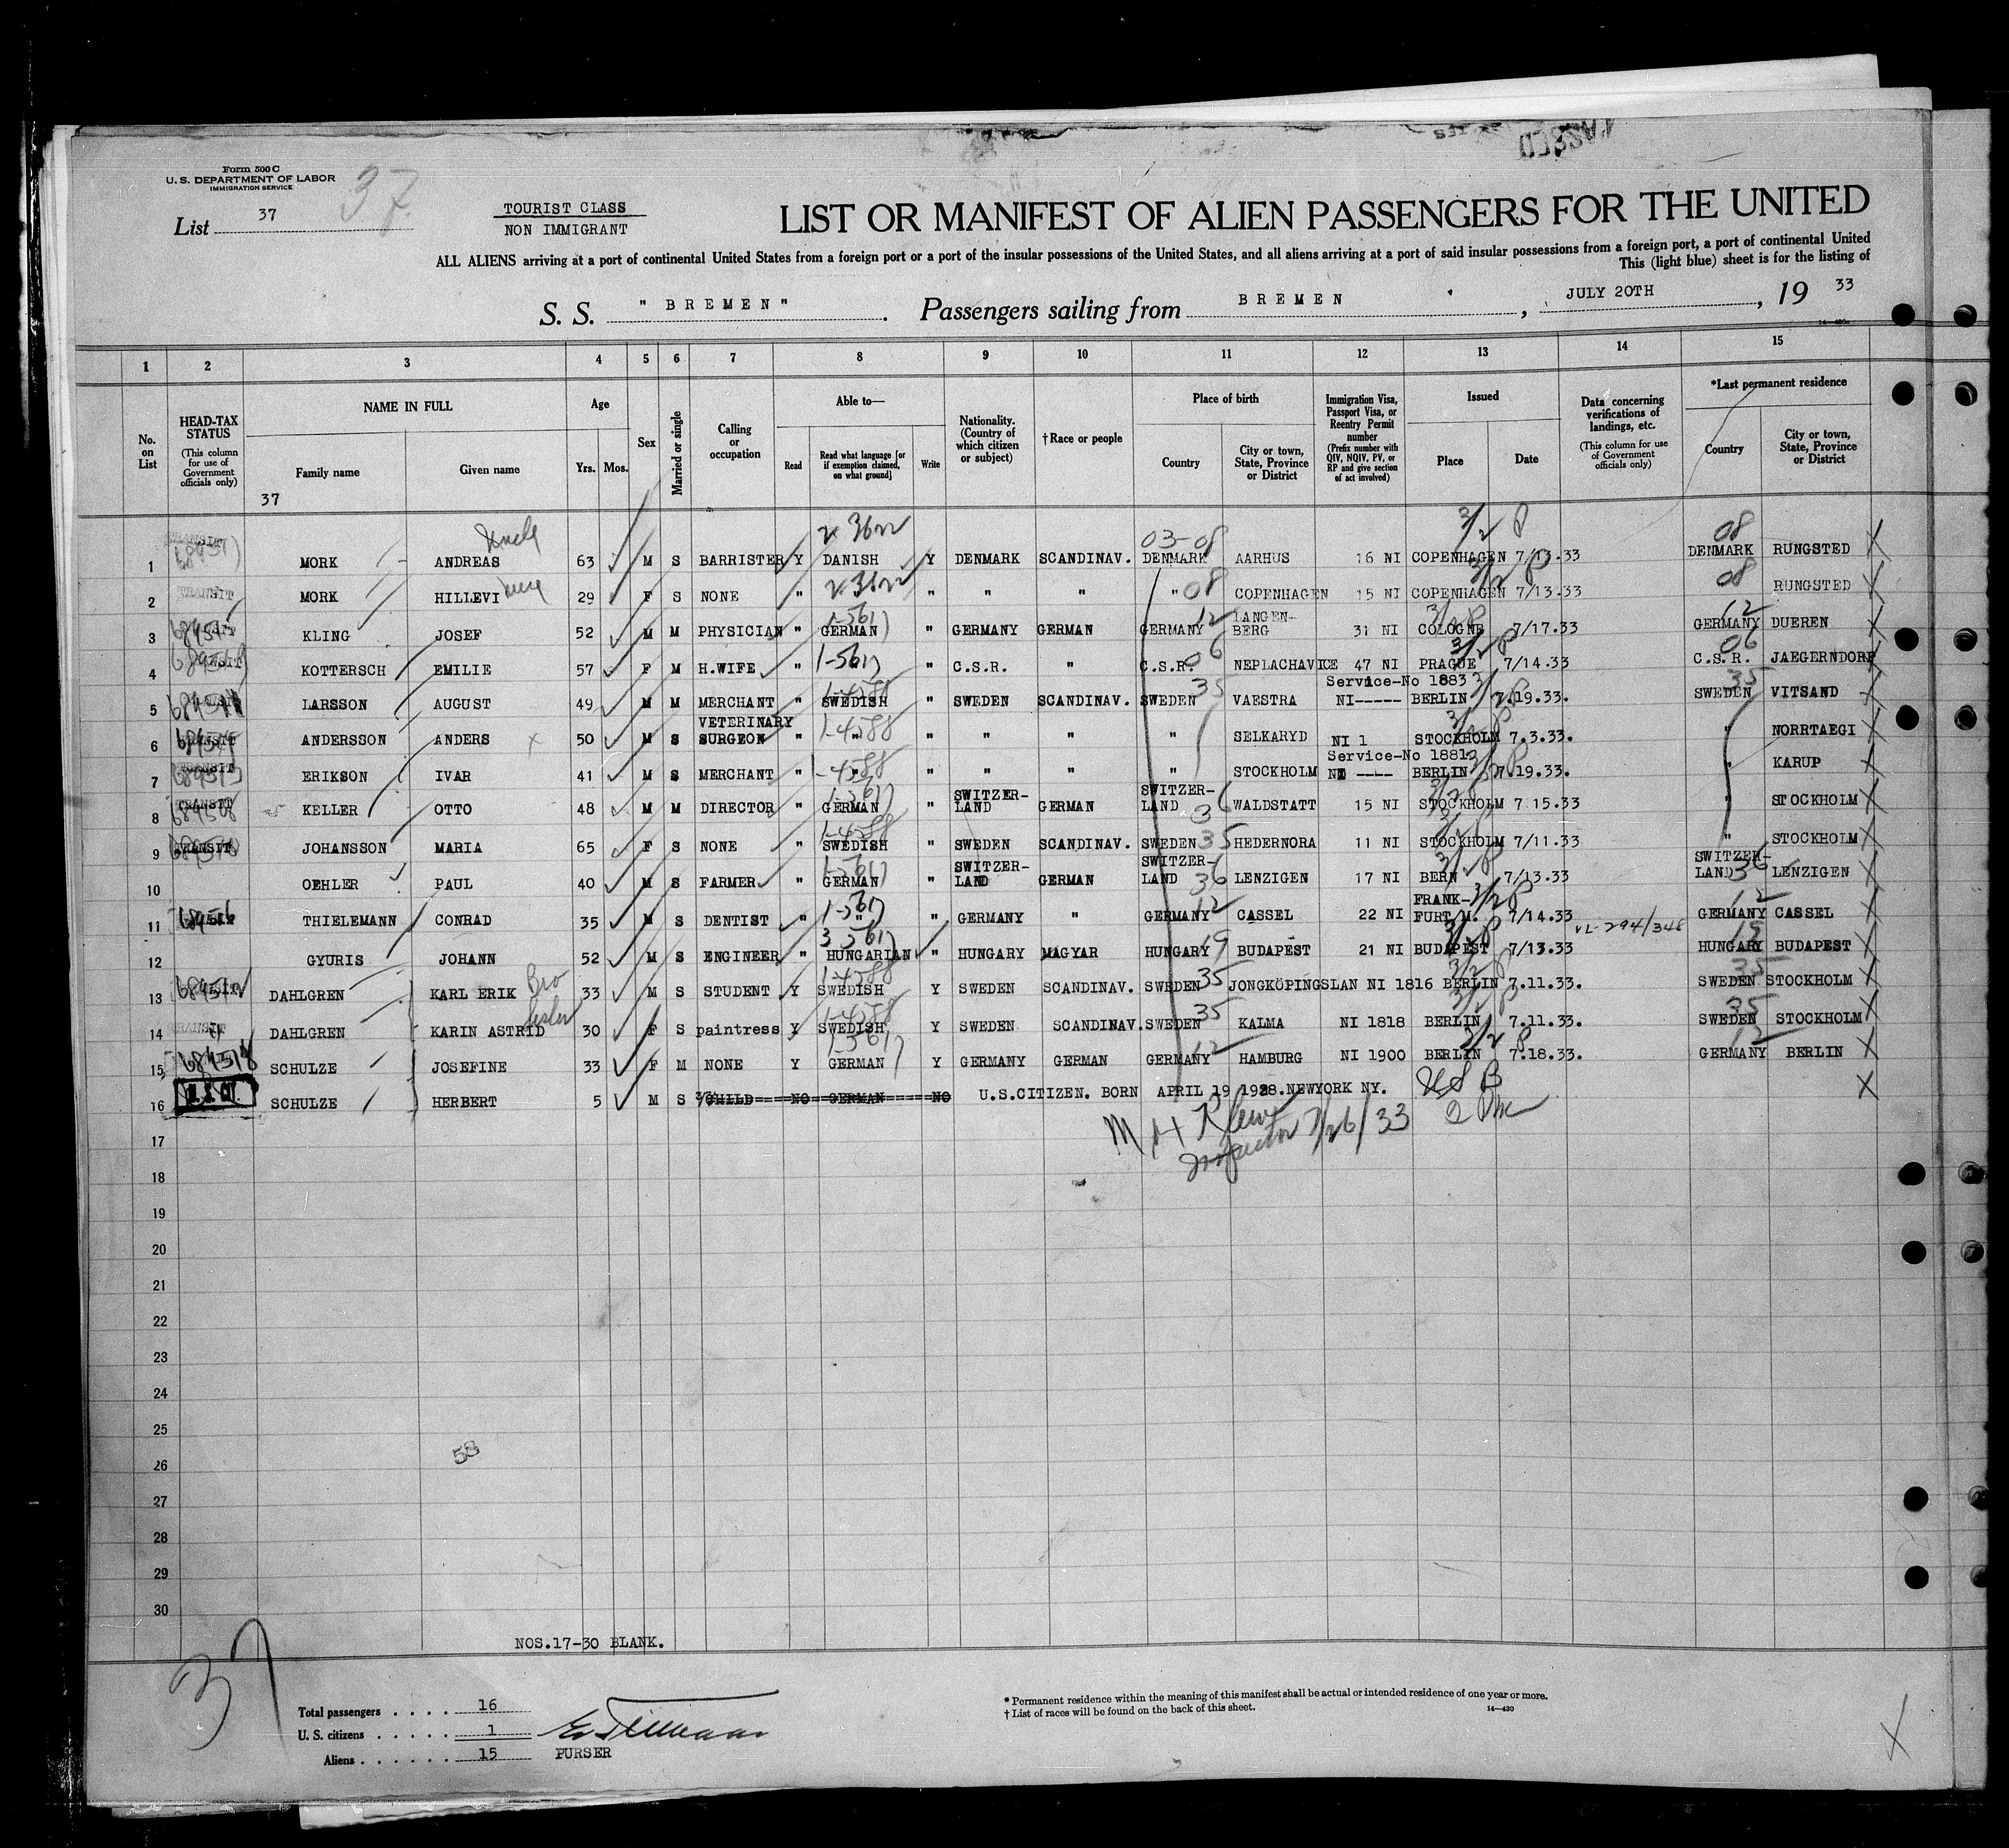 Form 500 C
U. S. DEPARTMENT OF LABOR
IMMIGRATION SERVICE
List 37
37
TOURIST CLASS
NON IMMIGRANT
LIST OR MANIFEST OF ALIEN PASSENGERS FOR THE UNITED
ALL ALIENS arriving at a port of continental United States from a foreign port or a port of the insular possessions of the United States, and all aliens arriving at a port of said insular possessions from a foreign port, a port of continental United
This (light blue) sheet is for the listing of
S. S. " BREMEN ". Passengers sailing from BREMEN, JULY 20TH, 19 33
1 2 3 4 5 6 7 8 9 10 11 12 13 14 15
No. on List
HEAD-TAX STATUS (This column for use of Government officials only)
NAME IN FULL
Family name
Given name
Age
Yrs. Mos.
Sex
Married or single
Calling or occupation
Able to—
Read
Read what language [or if exemption claimed, on what ground]
Write
Nationality. (Country of which citizen or subject)
† Race or people
Place of birth
Country
City or town, State, Province or District
Immigration Visa, Passport Visa, or Reentry Permit number (Prefix number with QIV, NQIV, PV, or RP and give section of act involved)
Issued
Place
Date
Data concerning verifications of landings, etc. (This column for use of Government officials only)
*Last permanent residence
Country
City or town, State, Province or District
37
1 MORK ANDREAS Uncle 63 M S BARRISTER Y DANISH Y DENMARK SCANDINAV. 03-08 DENMARK AARHUS 16 NI COPENHAGEN 7/13.33 08 DENMARK RUNGSTED
2 TRANSIT MORK HILLEVI 29 F S NONE " " " " " 08 COPENHAGEN 15 NI COPENHAGEN 7/13.33 08 RUNGSTED
3 KLING JOSEF 52 M M PHYSICIAN " 1-5617 GERMAN " GERMANY GERMAN GERMANY 12 LANGEN-BERG 31 NI COLOGNE 7/17.33 12 GERMANY DUEREN
4 KOTTERSCH EMILIE 57 F M H.WIFE " 1-5617 " C.S.R. " C.S.R. 06 NEPLACHAVICE 47 NI PRAGUE 7/14.33 06 C.S.R. JAEGERNDORF
5 LARSSON AUGUST 49 M M MERCHANT " 1-4588 SWEDISH " SWEDEN SCANDINAV. SWEDEN 35 VAESTRA Service-No 1883 NI----- BERLIN 7.19.33. 35 SWEDEN VITSAND
6 ANDERSSON ANDERS 50 M S VETERINARY SURGEON " 1-4588 " " " " " SELKARYD NI 1 STOCKHOLM 7.3.33. " NORRTAEGI
7 ERIKSON IVAR 41 M S MERCHANT " 1-4588 " " " " " STOCKHOLM Service-No 1881 NI ---- BERLIN 7.19.33. " KARUP
8 TRANSIT KELLER OTTO 48 M M DIRECTOR " 1-5617 GERMAN " SWITZER-LAND GERMAN SWITZER-LAND 36 WALDSTATT 15 NI STOCKHOLM 7 15.33 " STOCKHOLM
9 TRANSIT JOHANSSON MARIA 65 F S NONE " 1-4588 SWEDISH " SWEDEN SCANDINAV. SWEDEN 35 HEDERNORA 11 NI STOCKHOLM 7/11.33 " STOCKHOLM
10 OEHLER PAUL 40 M S FARMER " 1-5617 GERMAN " SWITZER-LAND GERMAN SWITZER-LAND 36 LENZIGEN 17 NI BERN 7/13.33 SWITZER-LAND 36 LENZIGEN
11 THIELEMANN CONRAD 35 M S DENTIST " 1-5617 " " GERMANY " GERMANY 12 CASSEL 22 NI FRANK-FURT/M. 7/14.33 VL-294/348 12 GERMANY CASSEL
12 GYURIS JOHANN 52 M S ENGINEER " 3 5617 HUNGARIAN " HUNGARY MAGYAR HUNGARY 19 BUDAPEST 21 NI BUDAPEST 7/13.33 19 HUNGARY BUDAPEST
13 DAHLGREN KARL ERIK Bro 33 M S STUDENT Y 1-4588 SWEDISH Y SWEDEN SCANDINAV. SWEDEN 35 JONGKÖPINGSLAN NI 1816 BERLIN 7.11.33. 35 SWEDEN STOCKHOLM
14 TRANSIT DAHLGREN KARIN ASTRID sister 30 F S paintress Y 1-4588 SWEDISH Y SWEDEN SCANDINAV. SWEDEN 35 KALMA NI 1818 BERLIN 7.11.33. 35 SWEDEN STOCKHOLM
15 684518 SCHULZE JOSEFINE 33 F M NONE Y 1-5617 GERMAN Y GERMANY GERMAN GERMANY 12 HAMBURG NI 1900 BERLIN 7.18.33. 12 GERMANY BERLIN
16 SCHULZE HERBERT 5 M S CHILD NO GERMAN NO U.S.CITIZEN. BORN APRIL 19 1928.NEWYORK NY. US B
Inspector 7/26/33
17
18
19
20
21
22
23
24
25
26
27
28
29
30
58
NOS.17-30 BLANK.
37
Total passengers . . . . . 16
U. S. citizens . . . . . . 1
Aliens . . . . . . 15
PURSER
* Permanent residence within the meaning of this manifest shall be actual or intended residence of one year or more.
† List of races will be found on the back of this sheet.
14—430